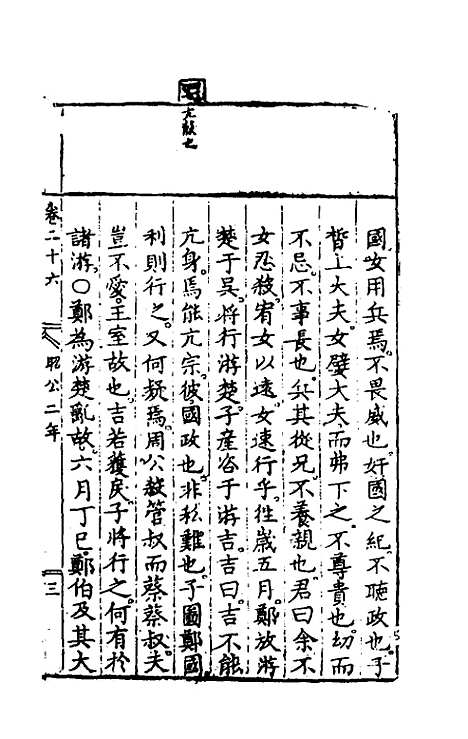 亢蔽也
國女用兵焉。不畏威也。奸國之紀。不聽政也。子
晳上大夫。女嬖大夫。而弗下之。不尊貴也。幼而
不忌。不事長也。兵其從兄。不養親也。君曰余不
女忍殺。宥女以遠。女速行乎。徃歲五月。鄭放游
楚于吳。將行游楚。子產咨于游吉。吉曰。吉不能
亢身。焉能亢宗。彼國政也。非私難也。子圖鄭國。
利則行之。又何疑焉。周公殺管叔而蔡蔡叔。夫
豈不愛。王室故也。吉若獲戾。子將行之。何有於
諸游。○鄭為游楚亂故。六月丁巳。鄭伯及其大
卷二十六 昭公二年 三